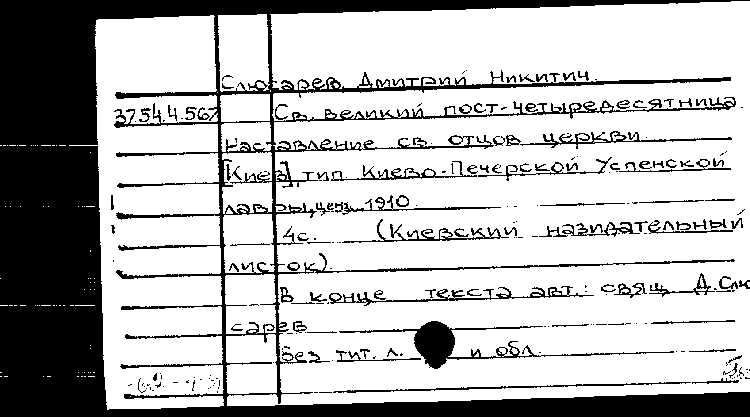 Слюсарев, Дмитрий Никитич.
3754.4.567 Св. великий пост-четыредесятница.
Наставление св. отцов церкви.
[Киев], тип Киево-Печерской Успенской
лавры, ценз. 1910.
4с. (Киевский назидательный
листок).
В конце текста авт.: свящ. Д. Слю
сарев
Без тит. л. и обл.